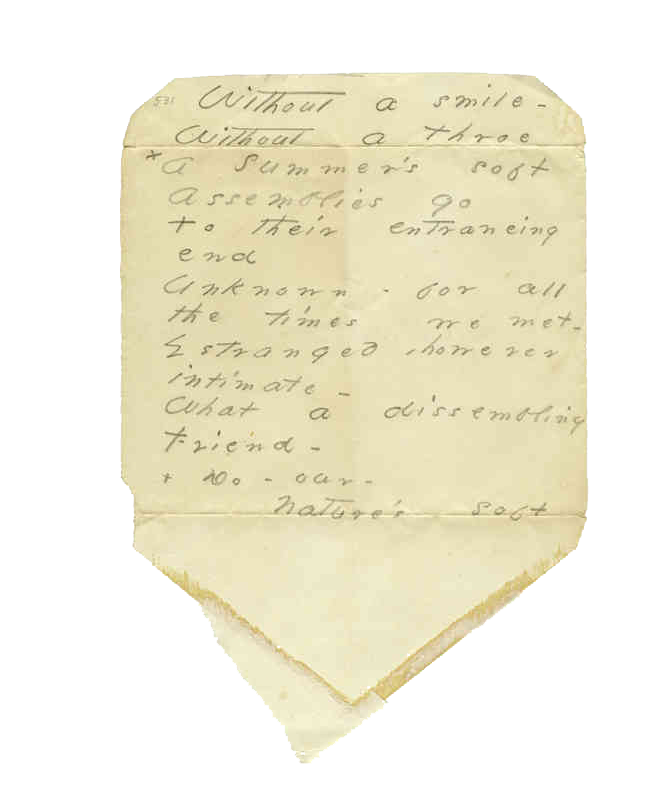 531 Without a smile -
Without a throe
+ A Summer's soft
Assemblies go
To their entrancing
end
Unknown - for all
the times we met -
Estranged, however
intimate -
What a dissembling
Friend -
+ Do - our -
Nature's soft